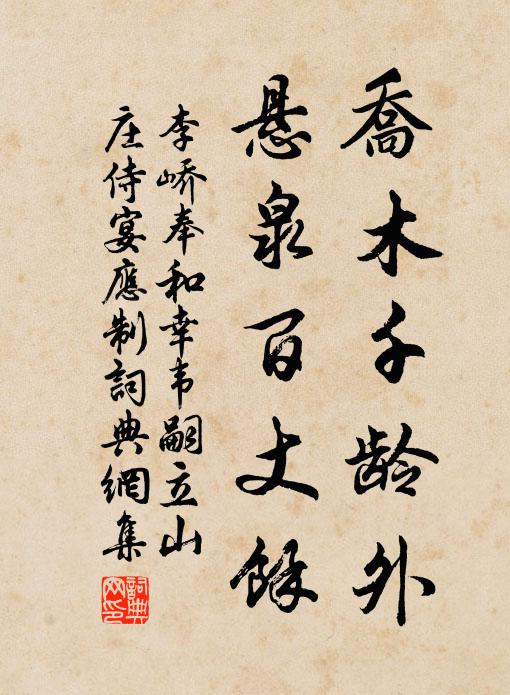 喬木千齡外
悬泉百丈餘
李嶠奉和幸韦嗣立山
庄侍宴應制詞典網集
詞典網印